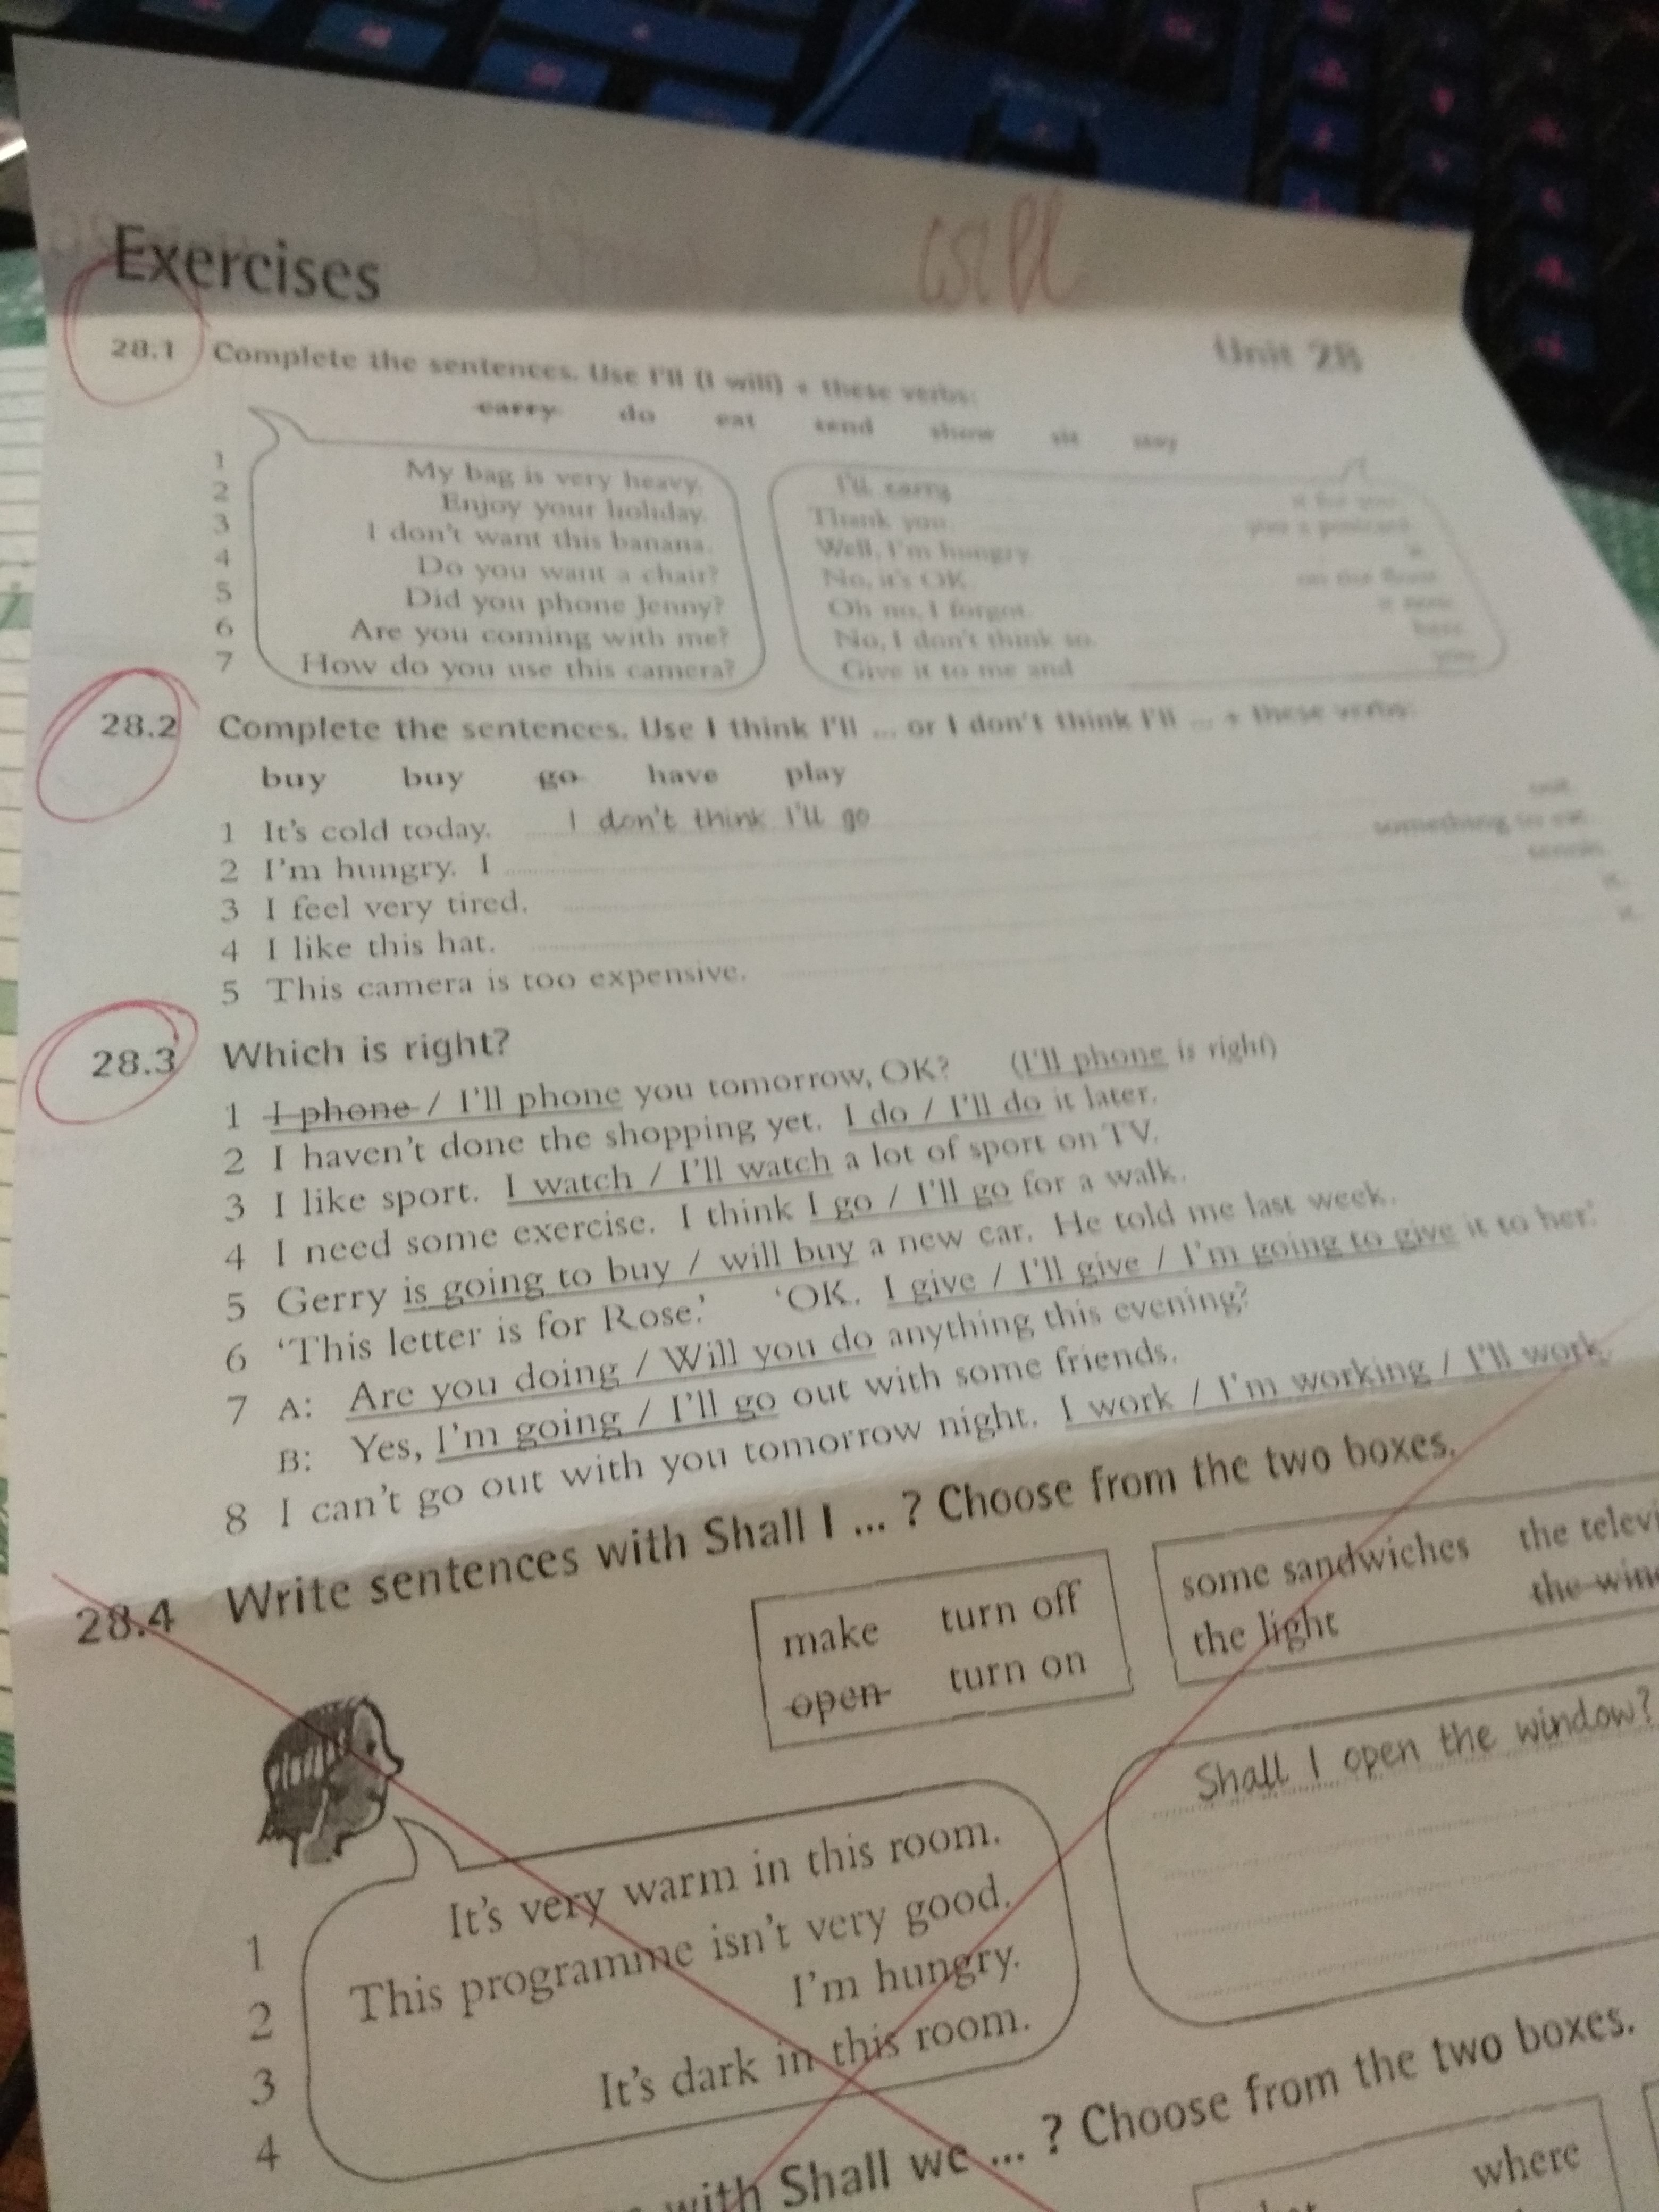 will
Exercises
Unit 28
28.1 Complete the sentences. Use I'll (I will) + these verbs:
carry do eat send show sit stay
1 My bag is very heavy. I'll carry it for you.
2 Enjoy your holiday. Thank you. you a postcard.
3 I don't want this banana. Well, I'm hungry. it.
4 Do you want a chair? No, it's OK. on the floor.
5 Did you phone Jenny? Oh no, I forgot. it now.
6 Are you coming with me? No, I don't think so. here.
7 How do you use this camera? Give it to me and you.
28.2 Complete the sentences. Use I think I'll ... or I don't think I'll ... + these verbs:
buy buy go have play
1 It's cold today. I don't think I'll go out.
2 I'm hungry. I something to eat.
3 I feel very tired. tennis.
4 I like this hat. it.
5 This camera is too expensive. it.
28.3 Which is right?
1 I phone / I'll phone you tomorrow, OK? (I'll phone is right)
2 I haven't done the shopping yet. I do / I'll do it later.
3 I like sport. I watch / I'll watch a lot of sport on TV.
4 I need some exercise. I think I go / I'll go for a walk.
5 Gerry is going to buy / will buy a new car. He told me last week.
6 'This letter is for Rose.' 'OK. I give / I'll give / I'm going to give it to her.'
7 A: Are you doing / Will you do anything this evening?
B: Yes, I'm going / I'll go out with some friends.
8 I can't go out with you tomorrow night. I work / I'm working / I'll work.
28.4 Write sentences with Shall I ... ? Choose from the two boxes.
make turn off some sandwiches the televi
open turn on the light the win
1 It's very warm in this room. Shall I open the window?
2 This programme isn't very good.
3 I'm hungry.
4 It's dark in this room.
with Shall we ... ? Choose from the two boxes.
where